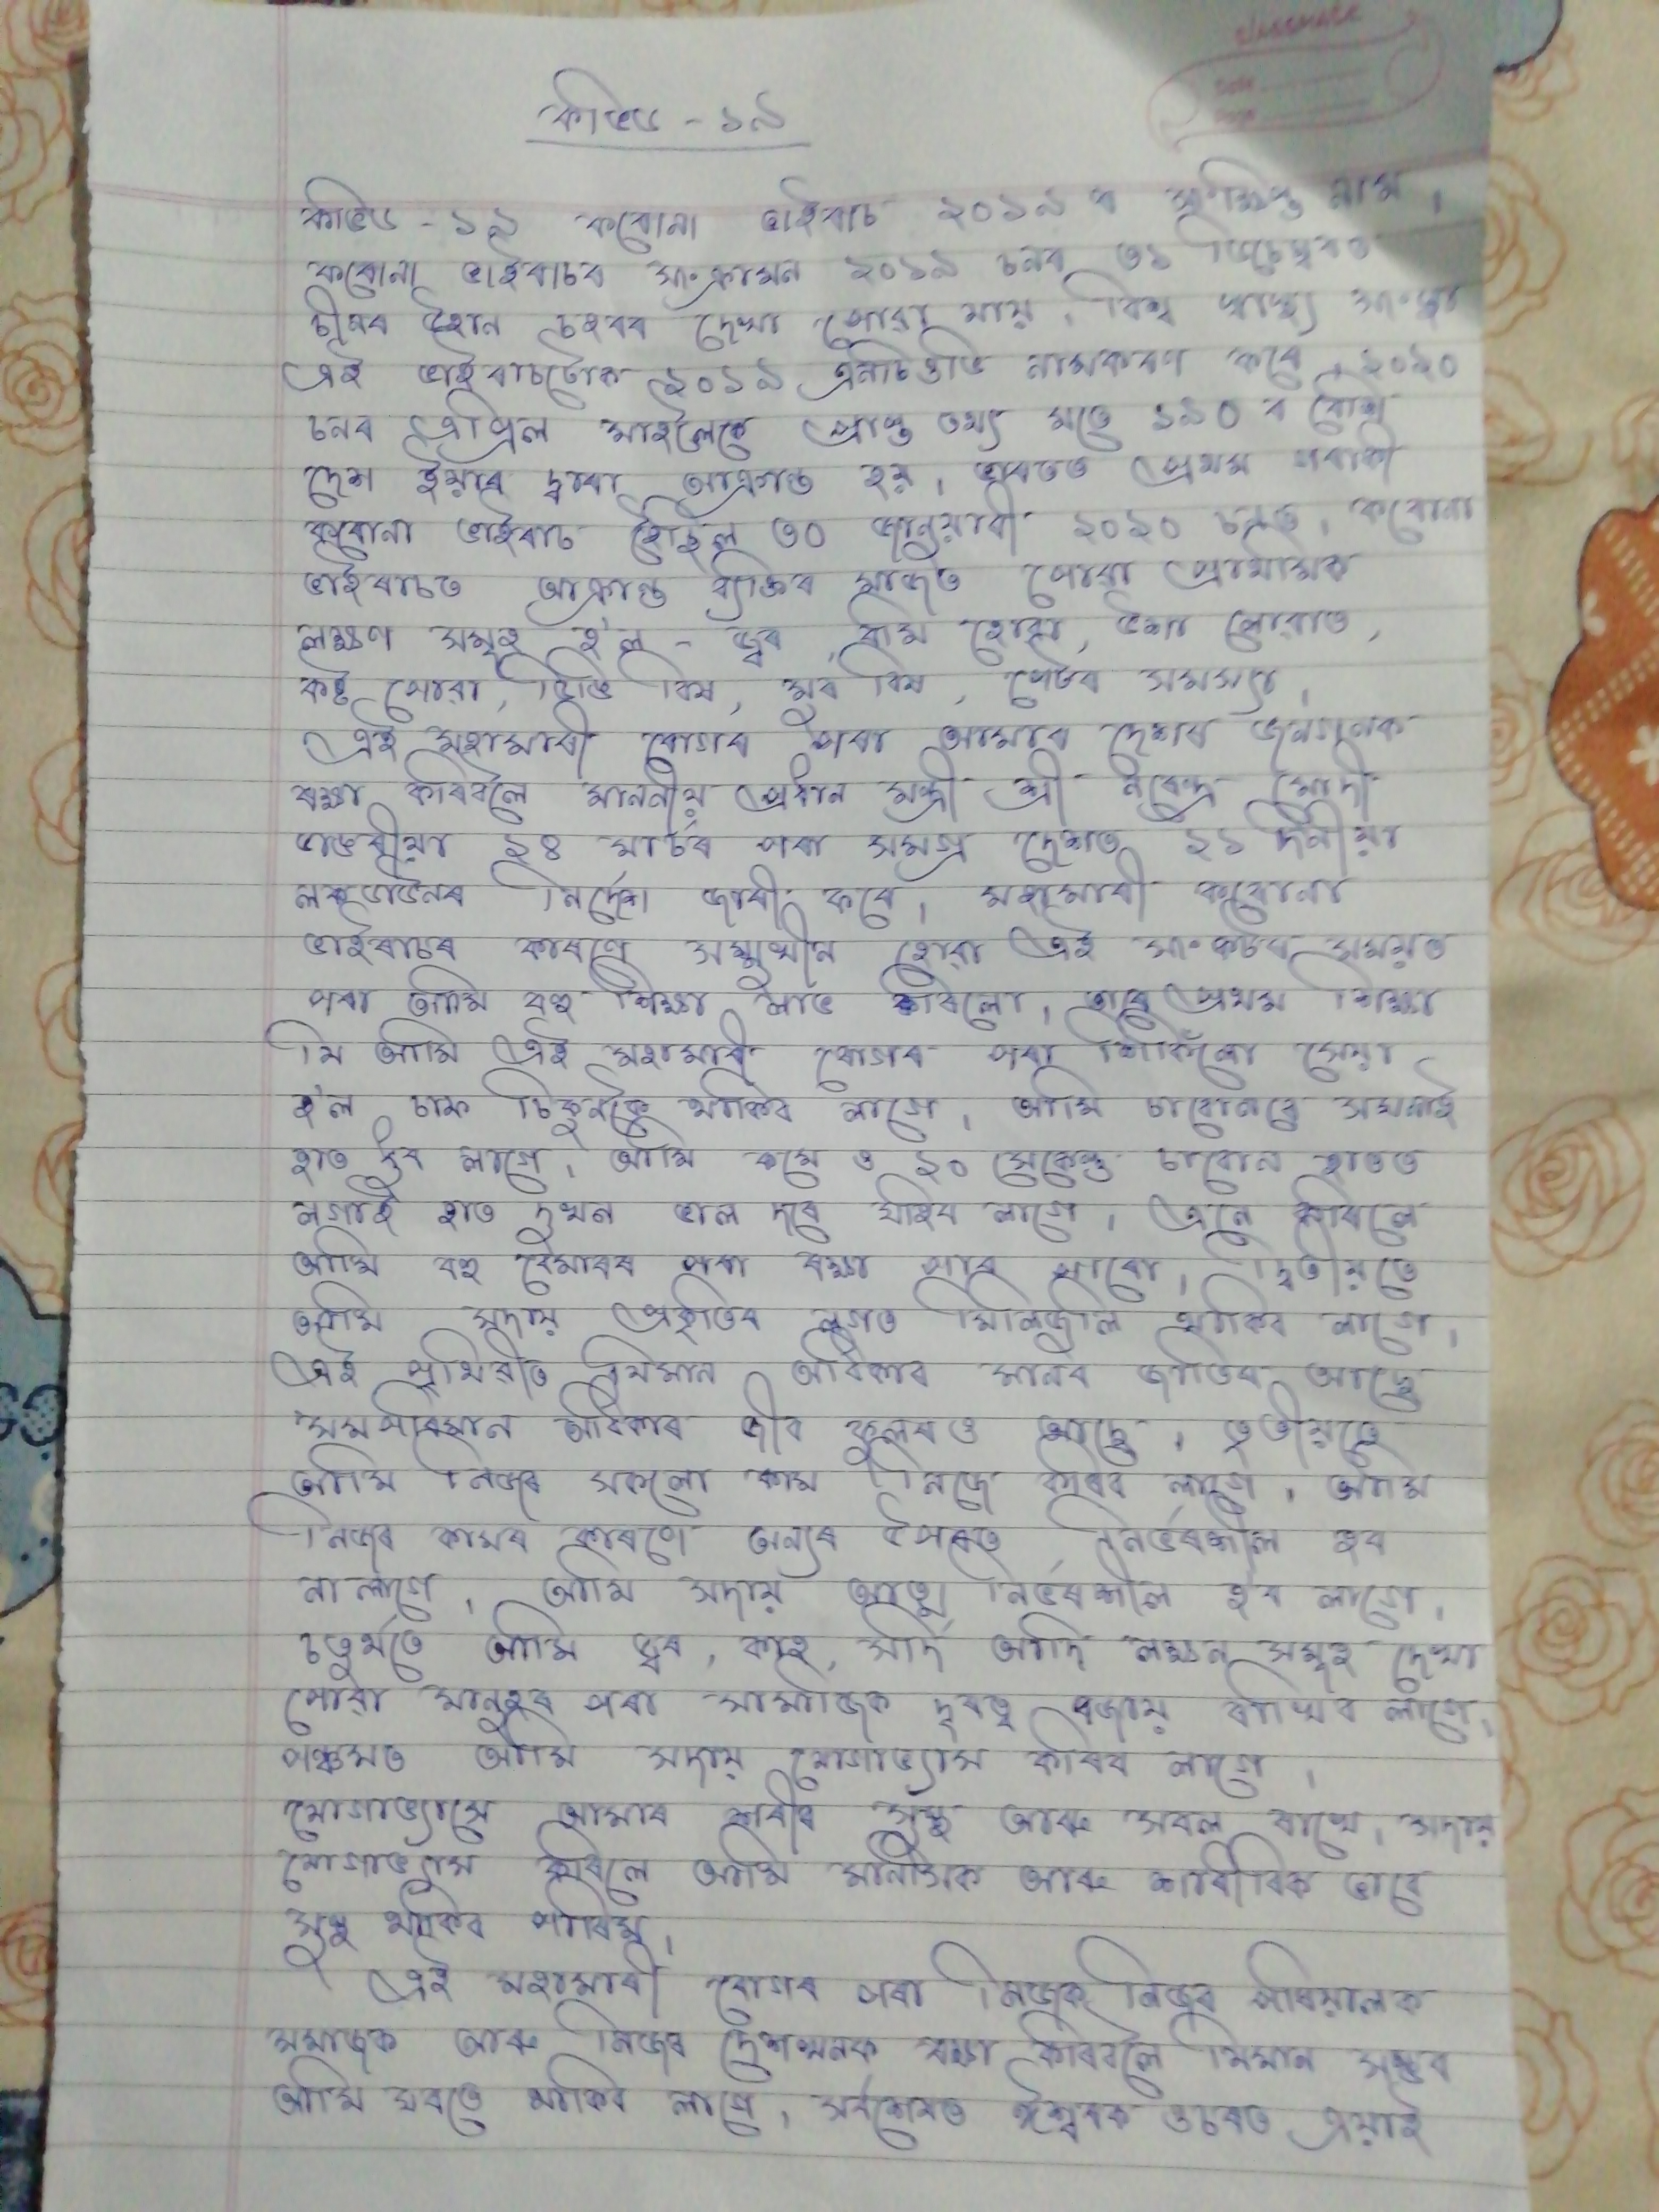 কভিড - ১৯
কভিড - ১৯ কৰোনা ভাইৰাচ ২০১৯ ৰ সংক্ষিপ্ত নাম ।
কৰোনা ভাইৰাচৰ সংক্ৰামন ২০১৯ চনৰ ৩১ ডিচেম্বৰত
চীনৰ উহান চহৰৰ দেখা পোৱা যায় । বিশ্ব স্বাস্থ্য সংস্থা
এই ভাইৰাচটোক ২০১৯ এনচিওভি নামকৰণ কৰে । ২০২০
চনৰ এপ্ৰিল মাহলৈকে প্ৰাপ্ত তথ্য মতে ১৯০ ৰ বেছি
দেশ ইয়াৰ দ্বাৰা আক্ৰান্ত হয় । ভাৰতত প্ৰথম গৰাকী
কৰোনা ভাইৰাচ হৈছিল ৩০ জানুৱাৰী ২০২০ চনত । কৰোনা
ভাইৰাচত আক্ৰান্ত ব্যক্তিৰ মাজত পোৱা প্ৰাথমিক
লক্ষণ সমূহ হ'ল - জ্বৰ , হোৱা , উশা লোৱাত ,
কষ্ট পোৱা , ডিঙি বিষ , মূৰ বিষ , পেটৰ সমস্যা ।
এই মহামাৰী ৰোগৰ পৰা আমাৰ দেশৰ জনগনক
ৰক্ষা কৰিবলৈ মাননীয় প্ৰধান মন্ত্ৰী শ্ৰী নৰেন্দ্ৰ মোদী
ডাঙৰীয়া ২৪ মাৰ্চৰ পৰা সমগ্ৰ দেশত ২১ দিনীয়া
লকডাউনৰ নিৰ্দেশ জাৰী কৰে । মহামাৰী কৰোনা
ভাইৰাচৰ কাৰণে সন্মুখীন হোৱা এই সংকটৰ সময়ত
পৰা আমি বহু শিক্ষা লাভ কৰিলো । তাৰে প্ৰথম শিক্ষা
যি আমি এই মহামাৰী ৰোগৰ পৰা শিকিলো সেয়া
হ'ল চাফ চিকুনকৈ থাকিব লাগে । আমি চাবোনেৰে সঘনাই
হাত ধুব লাগে । আমি কমেও ২০ সেকেণ্ড চাবোন হাতত
লগাই হাত দুখন ভাল দৰে ঘঁহিব লাগে । এনে কৰিলে
আমি বহু বেমাৰৰ পৰা ৰক্ষা পাব পাৰো । দ্বিতীয়তে
আমি সদায় প্ৰকৃতিৰ লগত মিলিজুলি থাকিব লাগে ।
এই পৃথিৱীত যিমান অধিকাৰ মানৱ জাতিৰ আছে
সমপৰিমান অধিকাৰ জীৱ কুলৰও আছে । তৃতীয়তে
আমি নিজৰ সকলো কাম নিজে কৰিব লাগে । আমি
নিজৰ কামৰ কাৰণে অন্যৰ ওপৰত নিৰ্ভৰশীল হব
নালাগে । আমি সদায় আত্ম নিৰ্ভৰশীল হ'ব লাগে ।
চতুৰ্থতে আমি জ্বৰ , কাহ , সৰ্দি আদি লক্ষন সমূহ দেখা
পোৱা মানুহৰ পৰা সামাজিক দূৰত্ব বজায় ৰাখিব লাগে ।
পঞ্চমত আমি সদায় যোগাভ্যাস কৰিব লাগে ।
যোগাভ্যাসে আমাৰ শৰীৰ সুস্থ আৰু সবল ৰাখে । সদায়
যোগাভ্যাস কৰিলে আমি মানসিক আৰু শাৰীৰিক ভাৱে
সুস্থ থাকিব পাৰিম ।
এই মহামাৰী ৰোগৰ পৰা নিজক নিজৰ পৰিয়ালক
সমাজক আৰু নিজৰ দেশখনক ৰক্ষা কৰিবলৈ যিমান সম্ভৱ
আমি ঘৰতে থাকিব লাগে । সৰ্বশেষত ঈশ্বৰক ওচৰত এয়াই